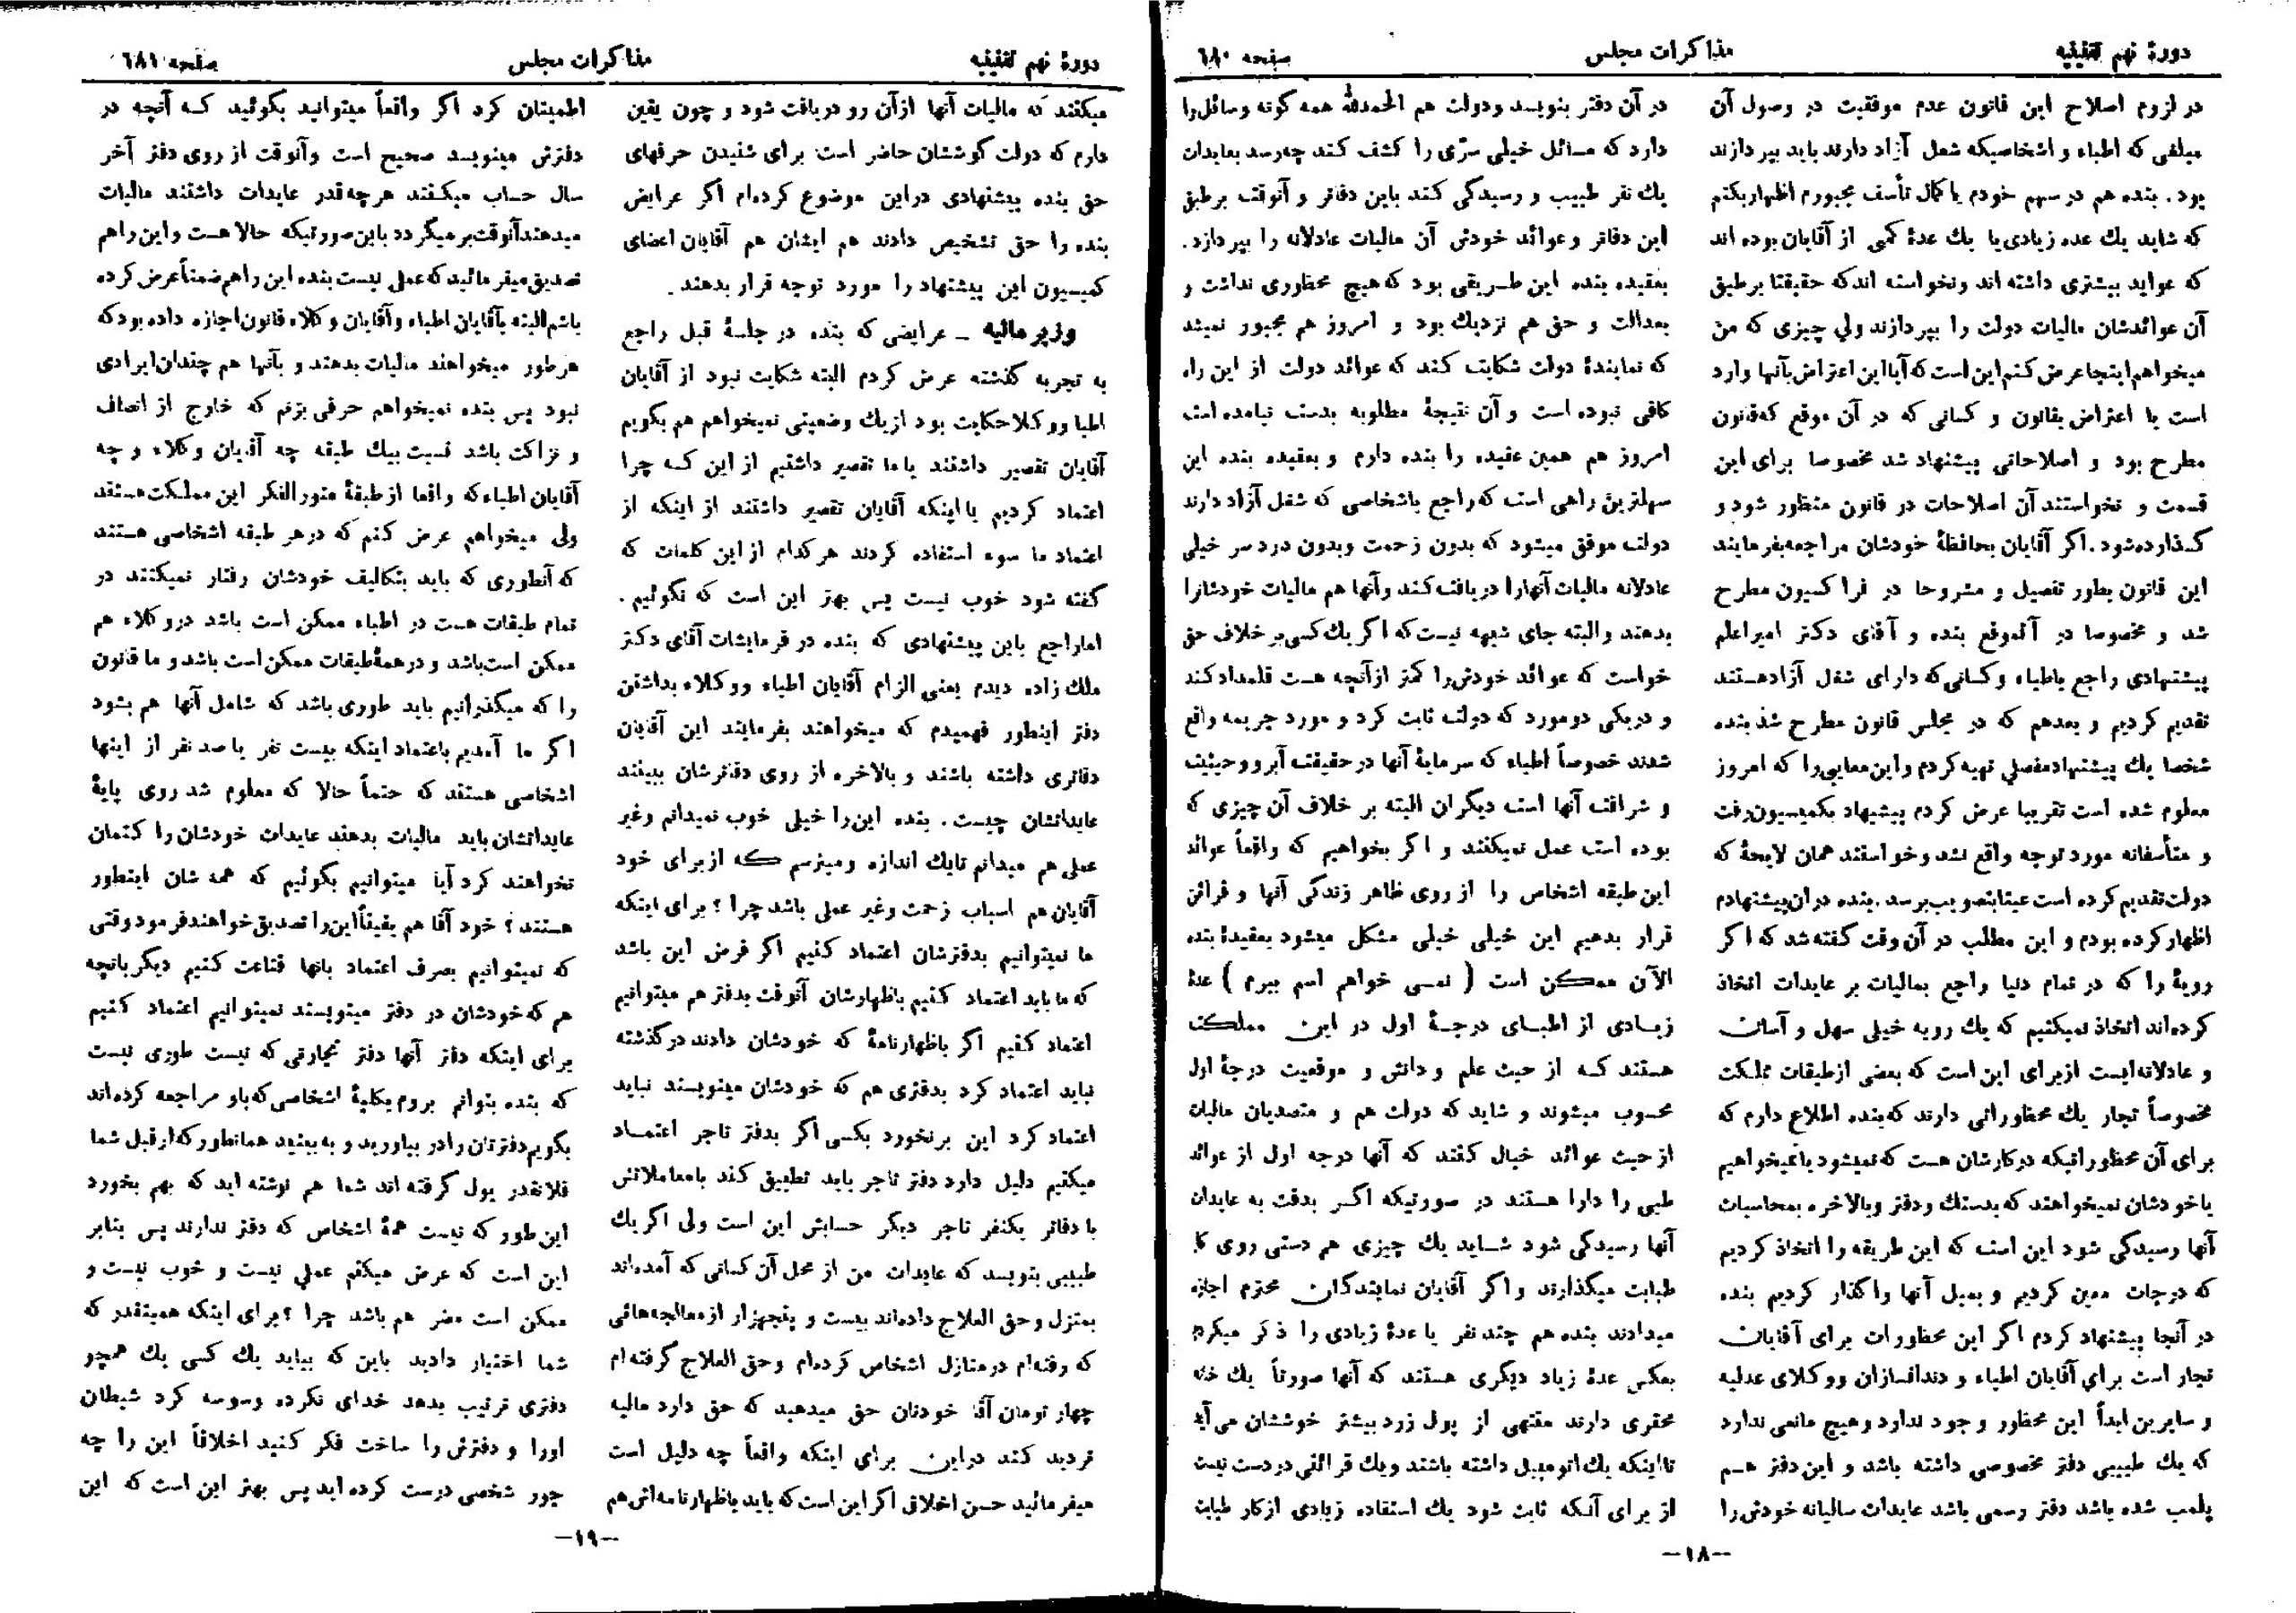 دورهٔ نهم تقنینیه
مذاکرات مجلس
صفحه ٦٨٠
در لزوم اصلاح این قانون عدم موفقیت در وصول آن
مبلغی که اطباء و اشخاصیکه شغل آزاد دارند باید بپردازند
بود . بنده هم در سهم خودم با کمال تأسف مجبورم اظهار بکنم
که شاید یك عده زیادی یا یك عدهٔ کمی از آقایان بوده اند
که عواید بیشتری داشته اند و نخواسته اند که حقیقتا بر طبق
آن عوائدشان مالیات دولت را بپردازند ولی چیزی که من
میخواهم اینجا عرض کنم این است که آیا این اعتراض بآنها وارد
است یا اعتراض بقانون و کسانی که در آن موقع که قانون
مطرح بود و اصلاحاتی پیشنهاد شد مخصوصا برای این
قسمت و نخواستند آن اصلاحات در قانون منظور شود و
گذارده شود . اگر آقایان بحافظهٔ خودشان مراجعه بفرمایند
این قانون بطور تفصیل و مشروحا در فراکسیون مطرح
شد و مخصوصا در آنموقع بنده و آقای دکتر امیر اعلم
پیشنهادی راجع باطباء و کسانی که دارای شغل آزاد هستند
تقدیم کردیم و بعد هم که در مجلس قانون مطرح شد بنده
شخصا یك پیشنهاد مفصلی تهیه کردم و این معایبی را که امروز
معلوم شده است تقریبا عرض کردم پیشنهاد بکمیسیون رفت
و متأسفانه مورد توجه واقع نشد و خواستند همان لایحهٔ که
دولت تقدیم کرده است عینا بتصویب برسد . بنده در آن پیشنهادم
اظهار کرده بودم و این مطلب در آن وقت گفته شد که اگر
رویهٔ را که در تمام دنیا راجع بمالیات بر عایدات اتخاذ
کرده‌اند اتخاذ نمیکنیم که یك رویه خیلی سهل و آسان
و عادلانه ایست از برای این است که بعضی از طبقات مملکت
مخصوصاً تجار یك محظوراتی دارند که بنده اطلاع دارم که
برای آن محظوراتیکه در کارشان هست که نمیشود یا نمیخواهیم
یا خودشان نمیخواهند که بدستك و دفتر و بالاخره بمحاسبات
آنها رسیدگی شود این است که این طریقه را اتخاذ کردیم
که درجات معین کردیم و بمیل آنها واگذار کردیم بنده
در آنجا پیشنهاد کردم اگر این محظورات برای آقایان
تجار است برای آقایان اطباء و دندانسازان و وکلای عدلیه
و سایرین ابداً این محظور وجود ندارد و هیچ مانعی ندارد
که یك طبیبی دفتر مخصوصی داشته باشد و این دفتر هم
پلمب شده باشد دفتر رسمی باشد عایدات سالیانه خودش را
در آن دفتر بنویسد و دولت هم الحمدلله همه گونه وسائل را
دارد که مسائل خیلی سرّی را کشف کند چه رسد بعایدات
یك نفر طبیب و رسیدگی کند باین دفاتر و آنوقت بر طبق
این دفاتر و عوائد خودش آن مالیات عادلانه را بپردازد.
بعقیده بنده این طریقی بود که هیچ محظوری نداشت و
بعدالت و حق هم نزدیك بود و امروز هم مجبور نمیشد
که نمایندهٔ دولت شکایت کند که عوائد دولت از این راه
کافی نبوده است و آن نتیجهٔ مطلوبه بدست نیامده است
امروز هم همین عقیده را بنده دارم و بعقیده بنده این
سهلترین راهی است که راجع باشخاصی که شغل آزاد دارند
دولت موفق میشود که بدون زحمت و بدون درد سر خیلی
عادلانه مالیات آنها را دریافت کند و آنها هم مالیات خودشانرا
بدهند و البته جای شبهه نیست که اگر یك کسی بر خلاف حق
خواست که عوائد خودش را کمتر از آنچه هست قلمداد کند
و در یکی دو مورد که دولت ثابت کرد و مورد جریمه واقع
شدند خصوصاً اطباء که سرمایهٔ آنها در حقیقت آبرو و حیثیت
و شرافت آنها است دیگران البته بر خلاف آن چیزی که
بوده است عمل نمیکنند و اگر بخواهیم که واقعاً عوائد
این طبقه اشخاص را از روی ظاهر زندگی آنها و قرائن
قرار بدهیم این خیلی خیلی مشکل میشود بعقیدهٔ بنده
الآن ممکن است ( نمی خواهم اسم ببرم ) عدهٔ
زیادی از اطبای درجهٔ اول در این مملکت
هستند که از حیث علم و دانش و موقعیت درجهٔ اول
محسوب میشوند و شاید که دولت هم و متصدیان مالیات
از حیث عوائد خیال کنند که آنها درجه اول از عوائد
طبی را دارا هستند در صورتیکه اگر بدقت به عایدات
آنها رسیدگی شود شاید یك چیزی هم دستی روی کار
طبابت میگذارند و اگر آقایان نمایندگان محترم اجازه
میدادند بنده هم چند نفر یا عدهٔ زیادی را ذکر میکردم
بعکس عدهٔ زیاد دیگری هستند که آنها صورتاً یك خانه
محقری دارند منتهی از پول زرد بیشتر خوششان می آید
تا اینکه یك اتومبیل داشته باشند و یك قرائنی در دست نیست
از برای آنکه ثابت شود یك استفاده زیادی از کار طبابت
–١٨–
دورهٔ نهم تقنینیه
مذاکرات مجلس
صفحه ٦٨١
میکنند که مالیات آنها از آن رو دریافت شود و چون یقین
دارم که دولت گوششان حاضر است برای شنیدن حرفهای
حق بنده پیشنهادی در این موضوع کرده‌ام اگر عرایض
بنده را حق تشخیص دادند هم ایشان هم آقایان اعضای
کمیسیون این پیشنهاد را مورد توجه قرار بدهند .
وزیر مالیه – عرایضی که بنده در جلسهٔ قبل راجع
به تجربه گذشته عرض کردم البته شکایت نبود از آقایان
اطبا و وکلا حکایت بود از یك وضعیتی نمیخواهم هم بگویم
آقایان تقصیر داشتند یا ما تقصیر داشتیم از این که چرا
اعتماد کردیم یا اینکه آقایان تقصیر داشتند از اینکه از
اعتماد ما سوء استفاده کردند هر کدام از این کلمات که
گفته شود خوب نیست پس بهتر این است که نگوئیم .
اما راجع باین پیشنهادی که بنده در فرمایشات آقای دکتر
ملك زاده دیدم یعنی الزام آقایان اطباء و وکلاء بداشتن
دفتر اینطور فهمیدم که میخواهند بفرمایند این آقایان
دفاتری داشته باشند و بالاخره از روی دفاترشان ببینند
عایداتشان چیست . بنده این را خیلی خوب نمیدانم و غیر
عملی هم میدانم تا یك اندازه و میترسم که از برای خود
آقایان هم اسباب زحمت و غیر عملی باشد چرا ؟ برای اینکه
ما نمیتوانیم بدفترشان اعتماد کنیم اگر فرض این باشد
که ما باید اعتماد کنیم باظهارشان آنوقت بدفتر هم میتوانیم
اعتماد کنیم اگر باظهارنامهٔ که خودشان دادند در گذشته
نباید اعتماد کرد بدفتری هم که خودشان مینویسند نباید
اعتماد کرد این برنخورد بکسی اگر بدفتر تاجر اعتماد
میکنیم دلیل دارد دفتر تاجر باید تطبیق کند با معاملاتش
با دفاتر یکنفر تاجر دیگر حسابش این است ولی اگر یك
طبیبی بنویسد که عایدات من از محل آن کسانی که آمده‌اند
بمنزل و حق العلاج داده‌اند بیست و پنجهزار از معالجه هائی
که رفته‌ام در منازل اشخاص کرده‌ام و حق العلاج گرفته‌ام
چهار تومان آقا خودتان حق میدهید که حق دارد مالیه
تردید کند در این برای اینکه واقعاً چه دلیل است
میفرمائید حسن اخلاق اگر این است که باید باظهارنامه اش هم
اطمینان کرد اگر واقعاً میتوانید بگوئید که آنچه در
دفترش مینویسد صحیح است و آنوقت از روی دفتر آخر
سال حساب میکنند هر چه قدر عایدات داشتند مالیات
میدهند آنوقت بر میگردد باین صورتیکه حالا هست و این را هم
تصدیق میفرمائید که عملی نیست بنده این را هم ضمناً عرض کرده
باشم البته بآقایان اطباء و آقایان وکلاء قانون اجازه داده بود که
هر طور میخواهند مالیات بدهند و بآنها هم چندان ایرادی
نبود پس بنده نمیخواهم حرفی بزنم که خارج از انصاف
و نزاکت باشد نسبت بیك طبقه چه آقایان وکلاء و چه
آقایان اطباء که واقعا از طبقهٔ منور الفکر این مملکت هستند
ولی میخواهم عرض کنم که در هر طبقه اشخاصی هستند
که آنطوری که باید بتکالیف خودشان رفتار نمیکنند در
تمام طبقات هست در اطباء ممکن است باشد در وکلاء هم
ممکن است باشد و در همهٔ طبقات ممکن است باشد و ما قانون
را که میگذرانیم باید طوری باشد که شامل آنها هم بشود
اگر ما آمدیم باعتماد اینکه بیست نفر یا صد نفر از اینها
اشخاصی هستند که حتماً حالا که معلوم شد روی پایهٔ
عایداتشان باید مالیات بدهند عایدات خودشان را کتمان
نخواهند کرد آیا میتوانیم بگوئیم که همه شان اینطور
هستند ؟ خود آقا هم یقیناً این را تصدیق خواهند فرمود وقتی
که نمیتوانیم بصرف اعتماد بآنها قناعت کنیم دیگر بآنچه
هم که خودشان در دفتر مینویسند نمیتوانیم اعتماد کنیم
برای اینکه دفتر آنها دفتر تجارتی که نیست طوری نیست
که بنده بتوانم بروم بکلیهٔ اشخاصی که باو مراجعه کرده‌اند
بگویم دفترتان را در بیاورید و به بینید همانطور که از قبل شما
فلانقدر پول گرفته اند شما هم نوشته اید که بهم بخورد
این طور که نیست همهٔ اشخاص که دفتر ندارند پس بنابر
این است که عرض میکنم عملی نیست و خوب نیست و
ممکن است مضر هم باشد چرا ؟ برای اینکه همینقدر که
شما اختیار دادید باین که بیاید یك کسی یك همچو
دفتری ترتیب بدهد خدای نکرده وسوسه کرد شیطان
اورا و دفترش را ساخت فکر کنید اخلاقاً این را چه
جور شخصی درست کرده اید پس بهتر این است که این
–١٩–